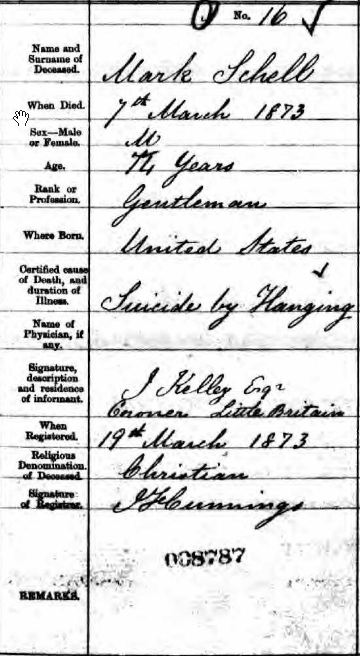 No. 16
Name and
Surname of
Deceased.
Mark Schell
When Died.
7th March 1873
Sex—Male
or Female.
M
Age.
74 Years
Rank or
Profession.
Gentleman
Where Born.
United States
Certified cause
of Death, and
duration of
Illness.
Suicide by Hanging
Name of
Physician, if
any.
Signature,
description
and residence
of informant.
J Kelley Esqr
Coroner Little Britain
When
Registered.
19th March 1873
Religious
Denomination
of Deceased.
Christian
Signature
of Registrar.
Cunnings
008787
REMARKS.